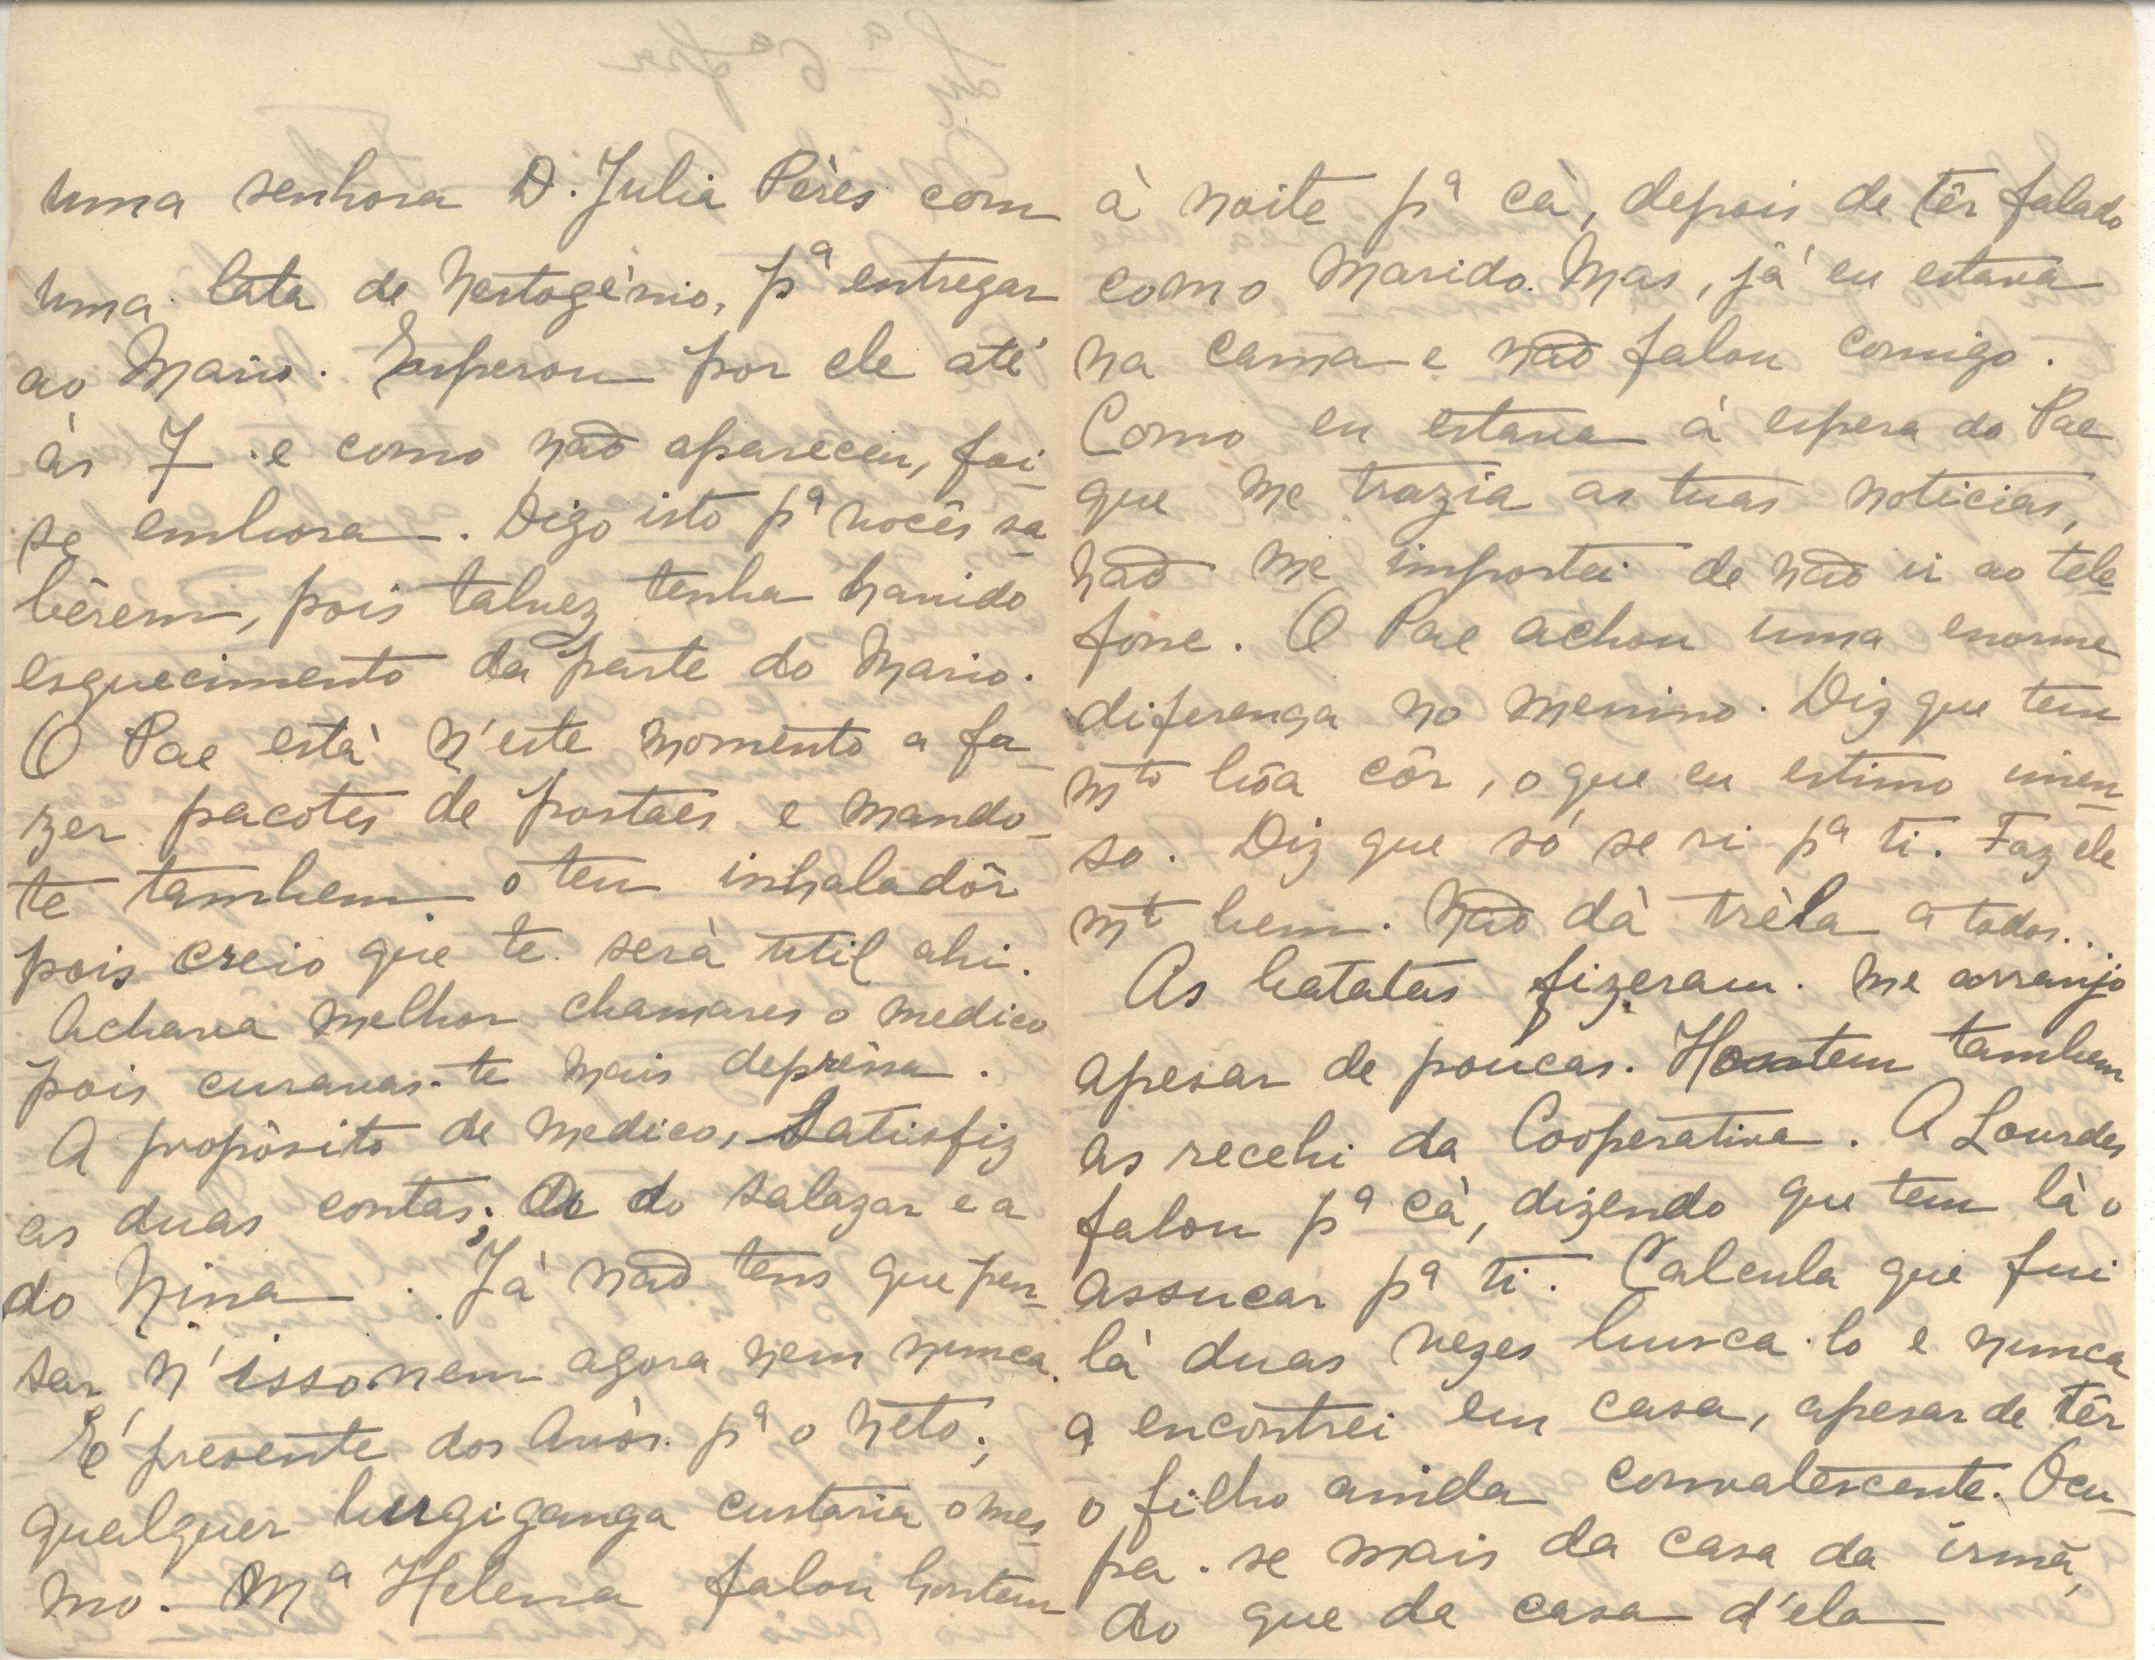 uma senhora D. Julia Pères com
uma lata de Nestogènio, pª entregar
ao Mario. Esperou por ele até
às 7 e como não apareceu, foi-
se embora. Digo isto pª vocês sa-
bêrem, pois talvez tenha havido
esquecimento da parte do Mario.
O Pae està n'este momento a fa-
zer pacotes de postaes e mando-
te tambem o teu inhaladôr
pois creio que te serà util ahi.
Achava melhor chamares o medico
pois curavas-te mais deprèssa.
A propòsito de medico, satisfiz
as duas contas; a do Salazar e a
do Nina. Jà não tens que pen-
sar n'isso nem agora nem nunca.
É presente dos Avòs pª o neto;
qualquer bugiganga custaria o mes-
mo. Mª Helena falou hontem
à noite pª cà, depois de têr falado
com o Marido. Mas, já eu estava
na cama e não falou comigo.
Como eu estava á espera do Pae
que me trazia as tuas noticias,
não me importei de não ir ao tele-
fone. O Pae achou uma enorme
diferença no menino. Diz que tem
mto bôa côr, o que eu estimo imen-
so. Diz que só se ri pª ti. Faz ele
mto bem. Não dà trèla a todos..
As batatas fizeram-me arranjo
apesar de poucas. Hontem tambem
as recebi da Cooperativa. A Lourdes
falou pª cà, dizendo que tem là o
assucar pª ti. Calcula que fui
là duas vezes busca-lo e nunca
a encontrei em casa, apesar de têr
o filho ainda convalescente. Ocu-
pa-se mais da casa da irmã,
do que da casa d'ela